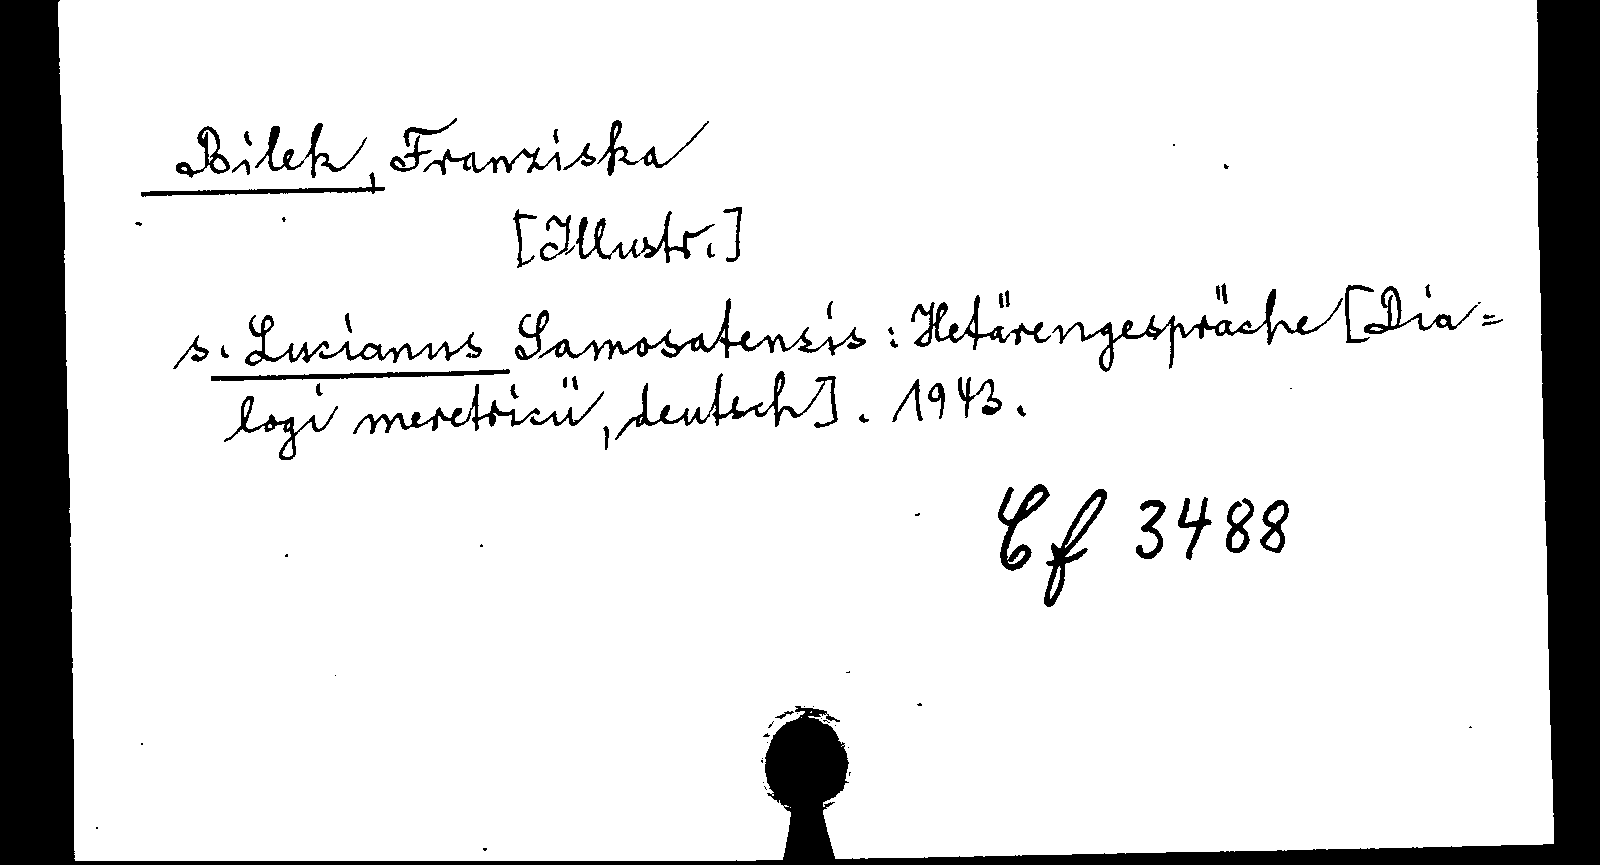 Bilek, Franziska
[Illustr.]
s. Lucianus Samosatensis: Hetärengespräche [Dia=
logi meretricii, deutsch]. 1943.
Cf 3488